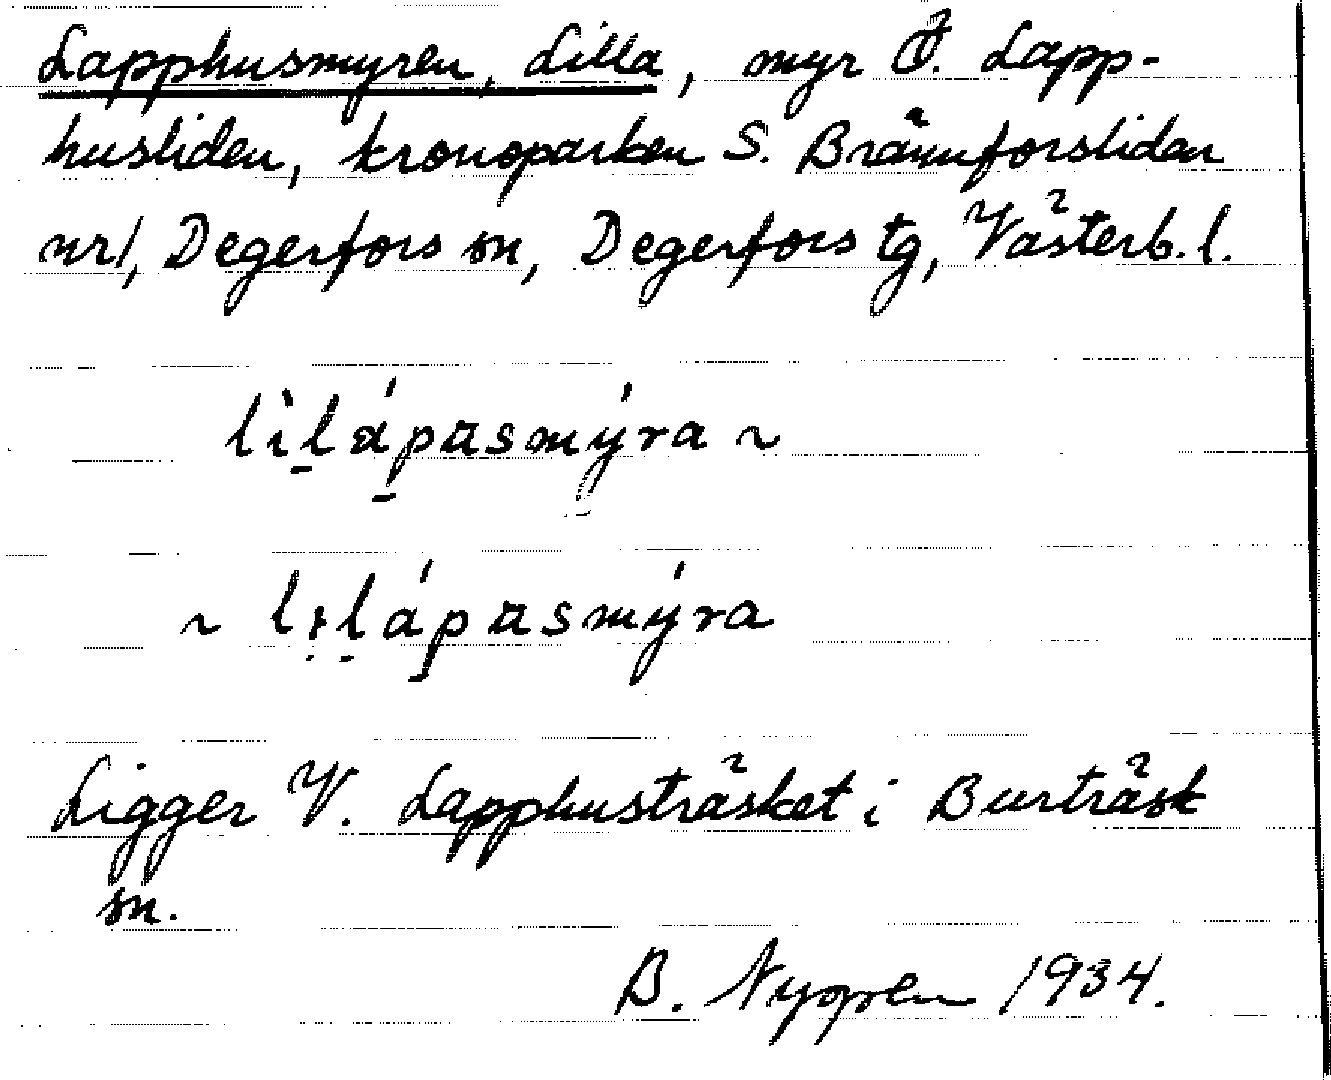 Lapphusmyren, Lilla, myr Ö. Lapp-
husliden, kronoparken S. Brännforsliden
nr 1, Degerfors sn, Degerfors tg, Västerb. l.
lìlápasmýra ~
~ lịlápasmýra
Ligger V. Lapphusträsket i Burträsk
sn.
B. Nyppen 1934.